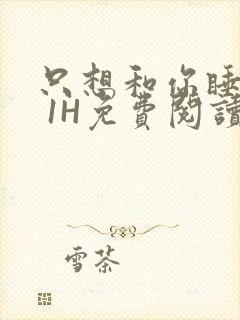 只想和你睡
1H免費閱讀
雪茶